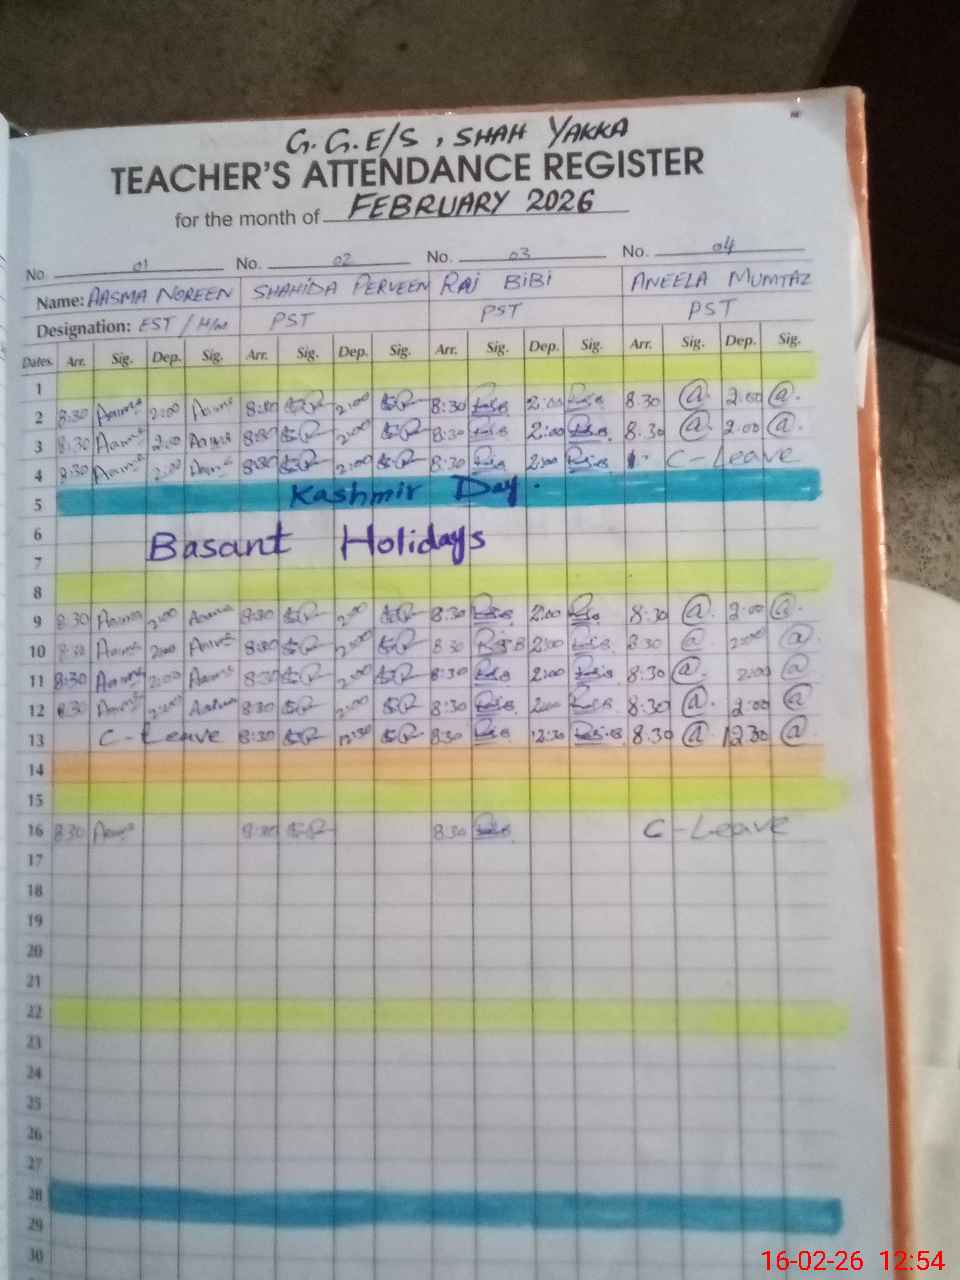 G.G.E/S, SHAH YAKKA
TEACHER'S ATTENDANCE REGISTER
for the month of FEBRUARY 2026
No. 01 No. 02 No. 03 No. 04
Name: AASMA NOREEN SHAHIDA PERVEEN RAJ BIBI ANEELA MUMTAZ
Designation: EST / H/M PST PST PST
Dates. Arr. Sig. Dep. Sig. Arr. Sig. Dep. Sig. Arr. Sig. Dep. Sig. Arr. Sig. Dep. Sig.
1
2 8:30 Aasma 2:00 Aasma 8:30 2:00 8:30 2:00 8.30 @ 2.00 @
3 8:30 Aasma 2:00 Aasma 8:30 2:00 8:30 2:00 8.30 @ 2.00 @
4 8:30 Aasma 2:00 Aasma 8:30 2:00 8:30 2:00 C-Leave
5 Kashmir Day.
6
Basant Holidays
7
8
9 8:30 Aasma 2:00 Aasma 8:30 2:00 8:30 2:00 8:30 @ 2:00 @
10 8:30 Aasma 2:00 Aasma 8:30 2:00 8:30 2:00 8:30 @ 2:00 @
11 8:30 Aasma 2:00 Aasma 8:30 2:00 8:30 2:00 8:30 @ 2:00 @
12 8:30 Aasma 2:00 Aasma 8:30 2:00 8:30 2:00 8.30 @ 2:00 @
13 C-Leave 8:30 12:30 8:30 12:30 8.30 @ 1230 @
14
15
16 8:30 Aasma 8:30 8:30 C-Leave
17
18
19
20
21
22
23
24
25
26
27
28
29
30
16-02-26 12:54